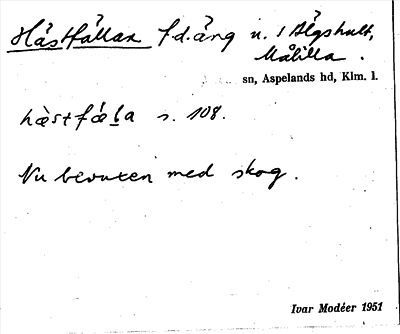 Hästfällan f.d. äng u. 1 Älgshult,
Målilla.
sn, Aspelands hd, Klm. l.
hæ̀stfǽḷa s. 108.
Nu bevuxen med skog.
Ivar Modéer 1951